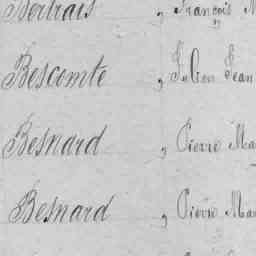 Bertrais , François M
Bescomte , Julien Jean
Besnard , Pierre Ma
Besnard , Pierre Mar